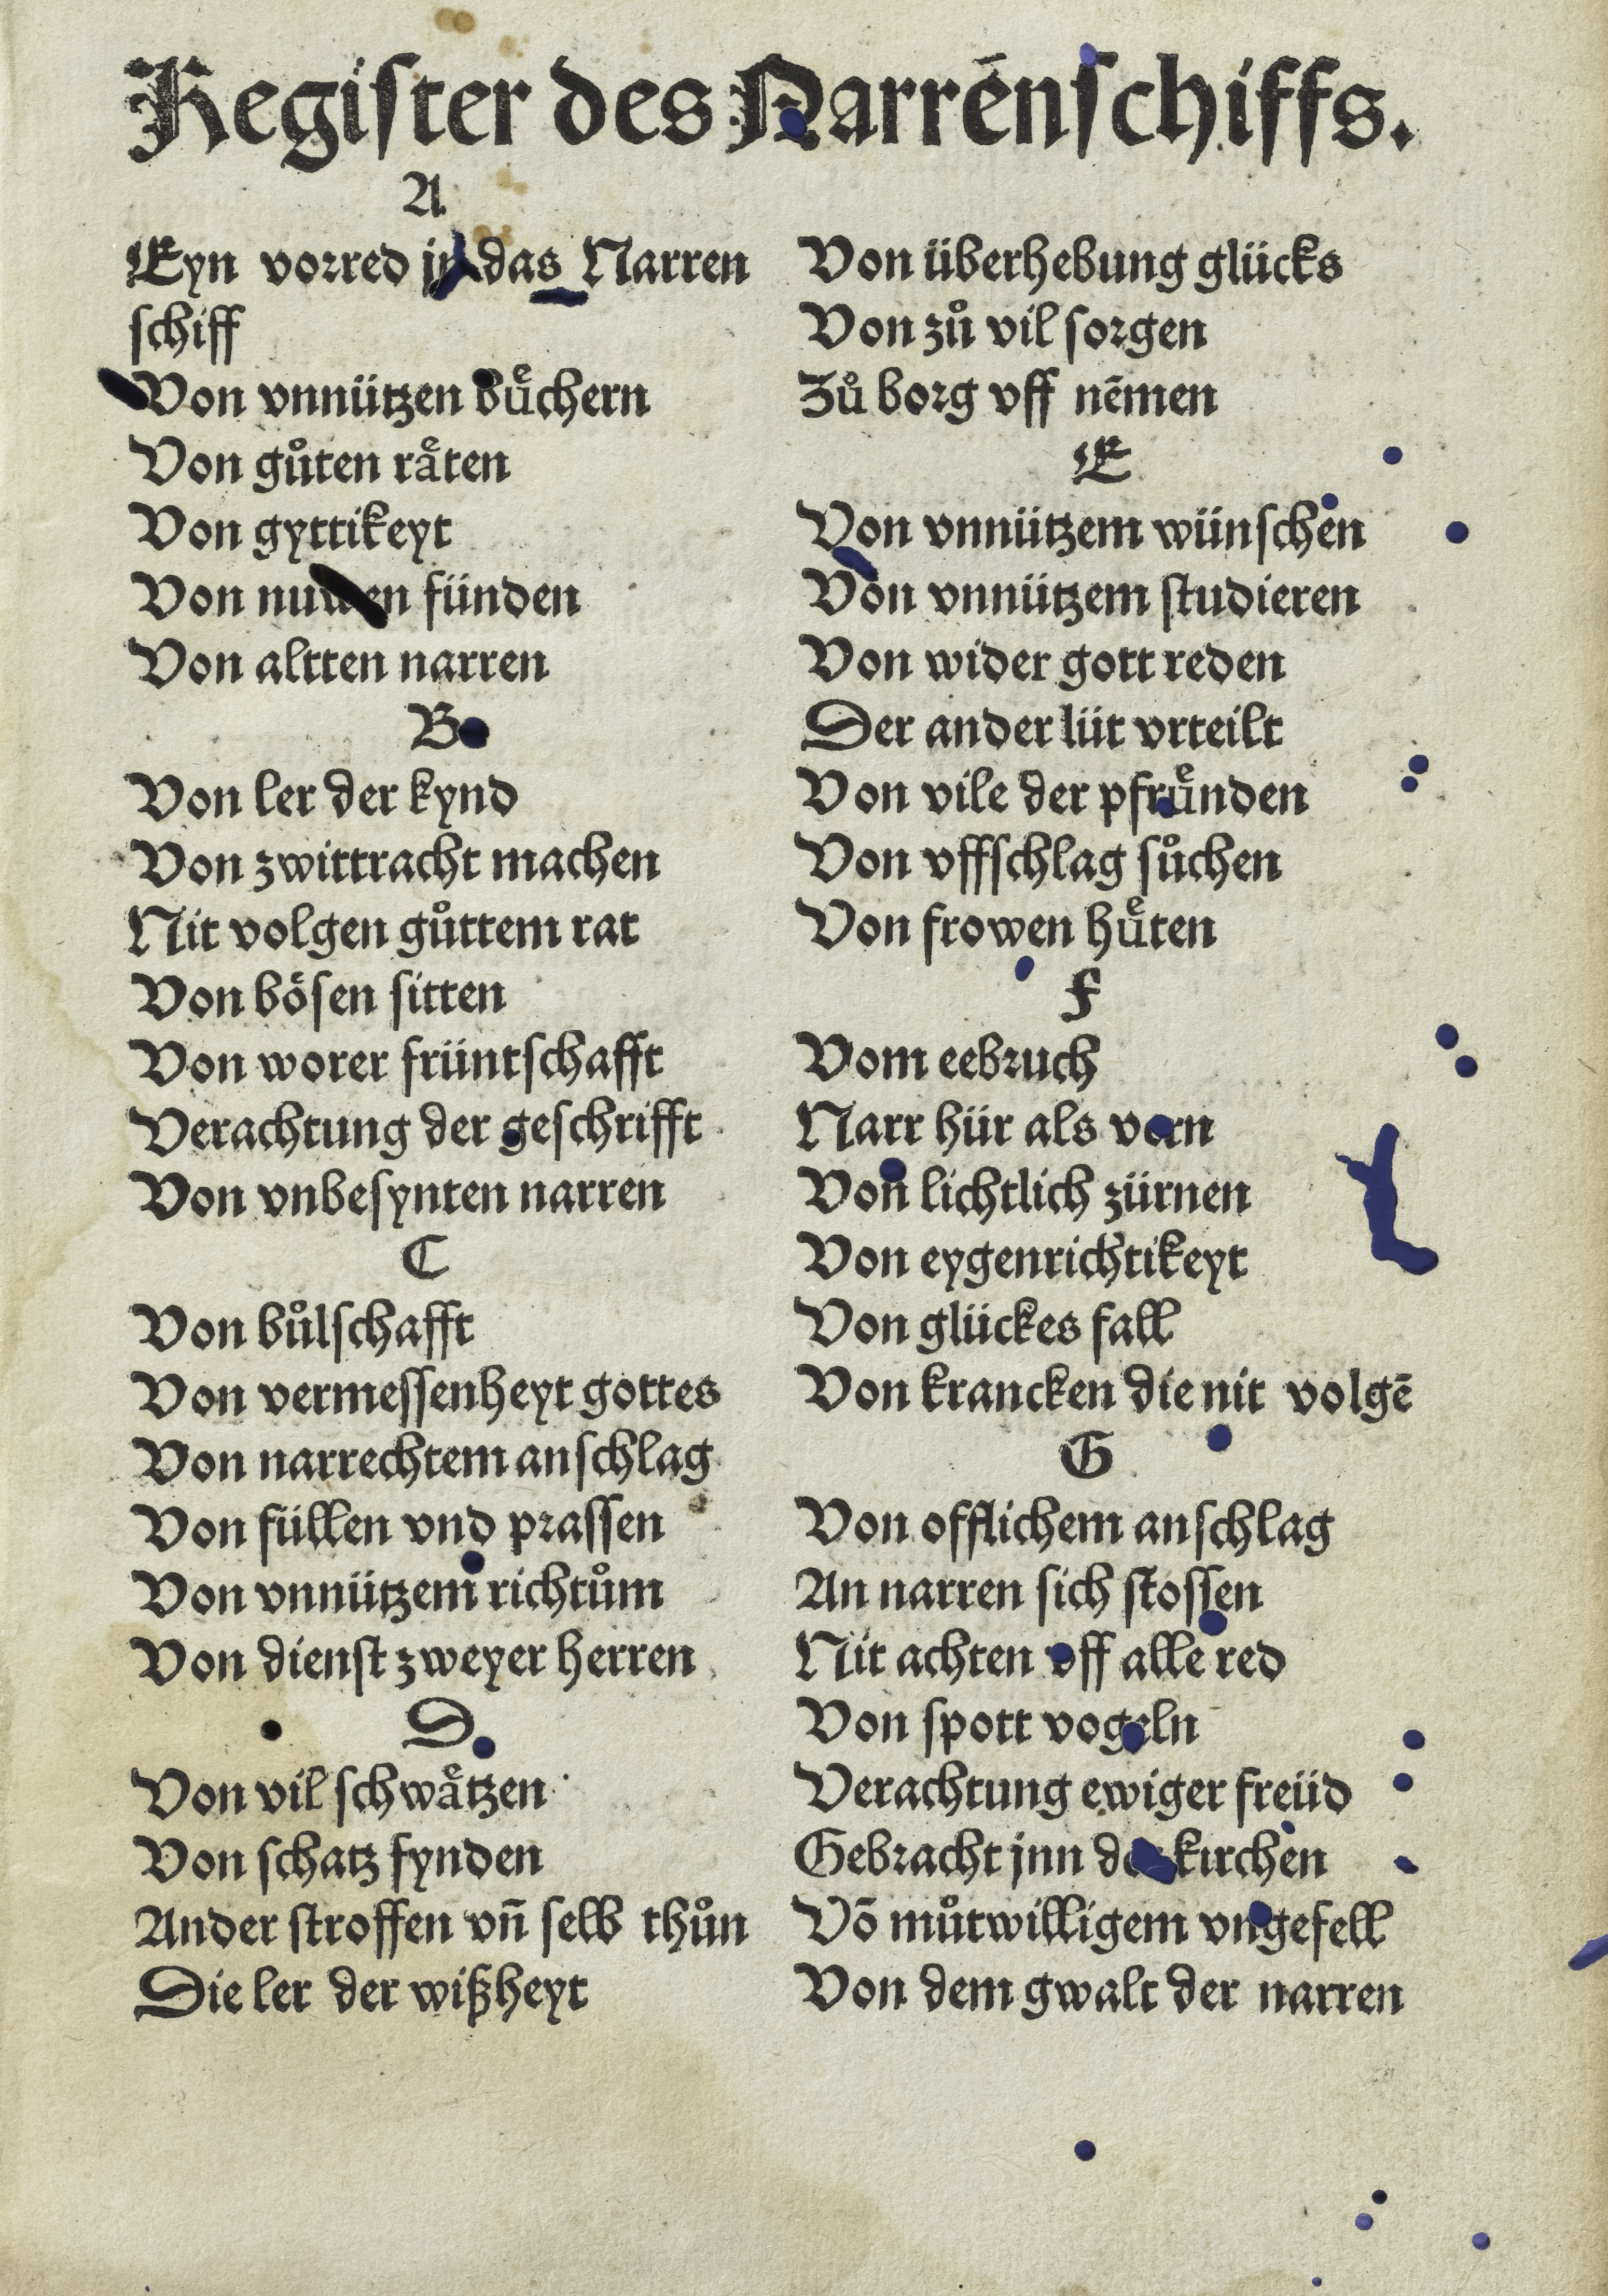 Regiſter des Narrēnſchiffs.
A
Eyn vorred jn das Narren
ſchiff
Von vnnützen buͤchern
Von guͦten raͤten
Von gyttikeyt
Von nuwen fünden
Von altten narren
B
Von ler der kynd
Von zwittracht machen
Nit volgen guͦttem rat
Von boͤſen ſitten
Von worer früntſchafft
Verachtung der geſchrifft
Von vnbeſynten narren
C
Von buͦlſchafft
Von vermeſſenheyt gottes
Von narrechtem anſchlag
Von füllen vnd praſſen
Von vnnützem richtuͦm
Von dienſt zweyer herren
D
Von vil ſchwaͤtzen
Von ſchatz fynden
Ander ſtroffen vn̄ ſelb thuͦn
Die ler der wißheyt
Von überhebung glücks
Von zuͦ vil ſorgen
Zuͦ borg vff nēmen
E
Von vnnützem wünſchen
Von vnnützem ſtudieren
Von wider gott reden
Der ander lüt vrteilt
Von vile der pfruͤnden
Von vffſchlag ſuͦchen
Von frowen huͤten
F
Vom eebruch
Narr hür als vern
Von lichtlich zürnen
Von eygenrichtikeyt
Von glückes fall
Von krancken die nit volgē
G
Von offlichem anſchlag
An narren ſich ſtoſſen
Nit achten vff alle red
Von ſpott vogeln
Verachtung ewiger freüd
Gebracht jnn der kirchen
Vō muͦtwilligem vngefell
Von dem gwalt der narren